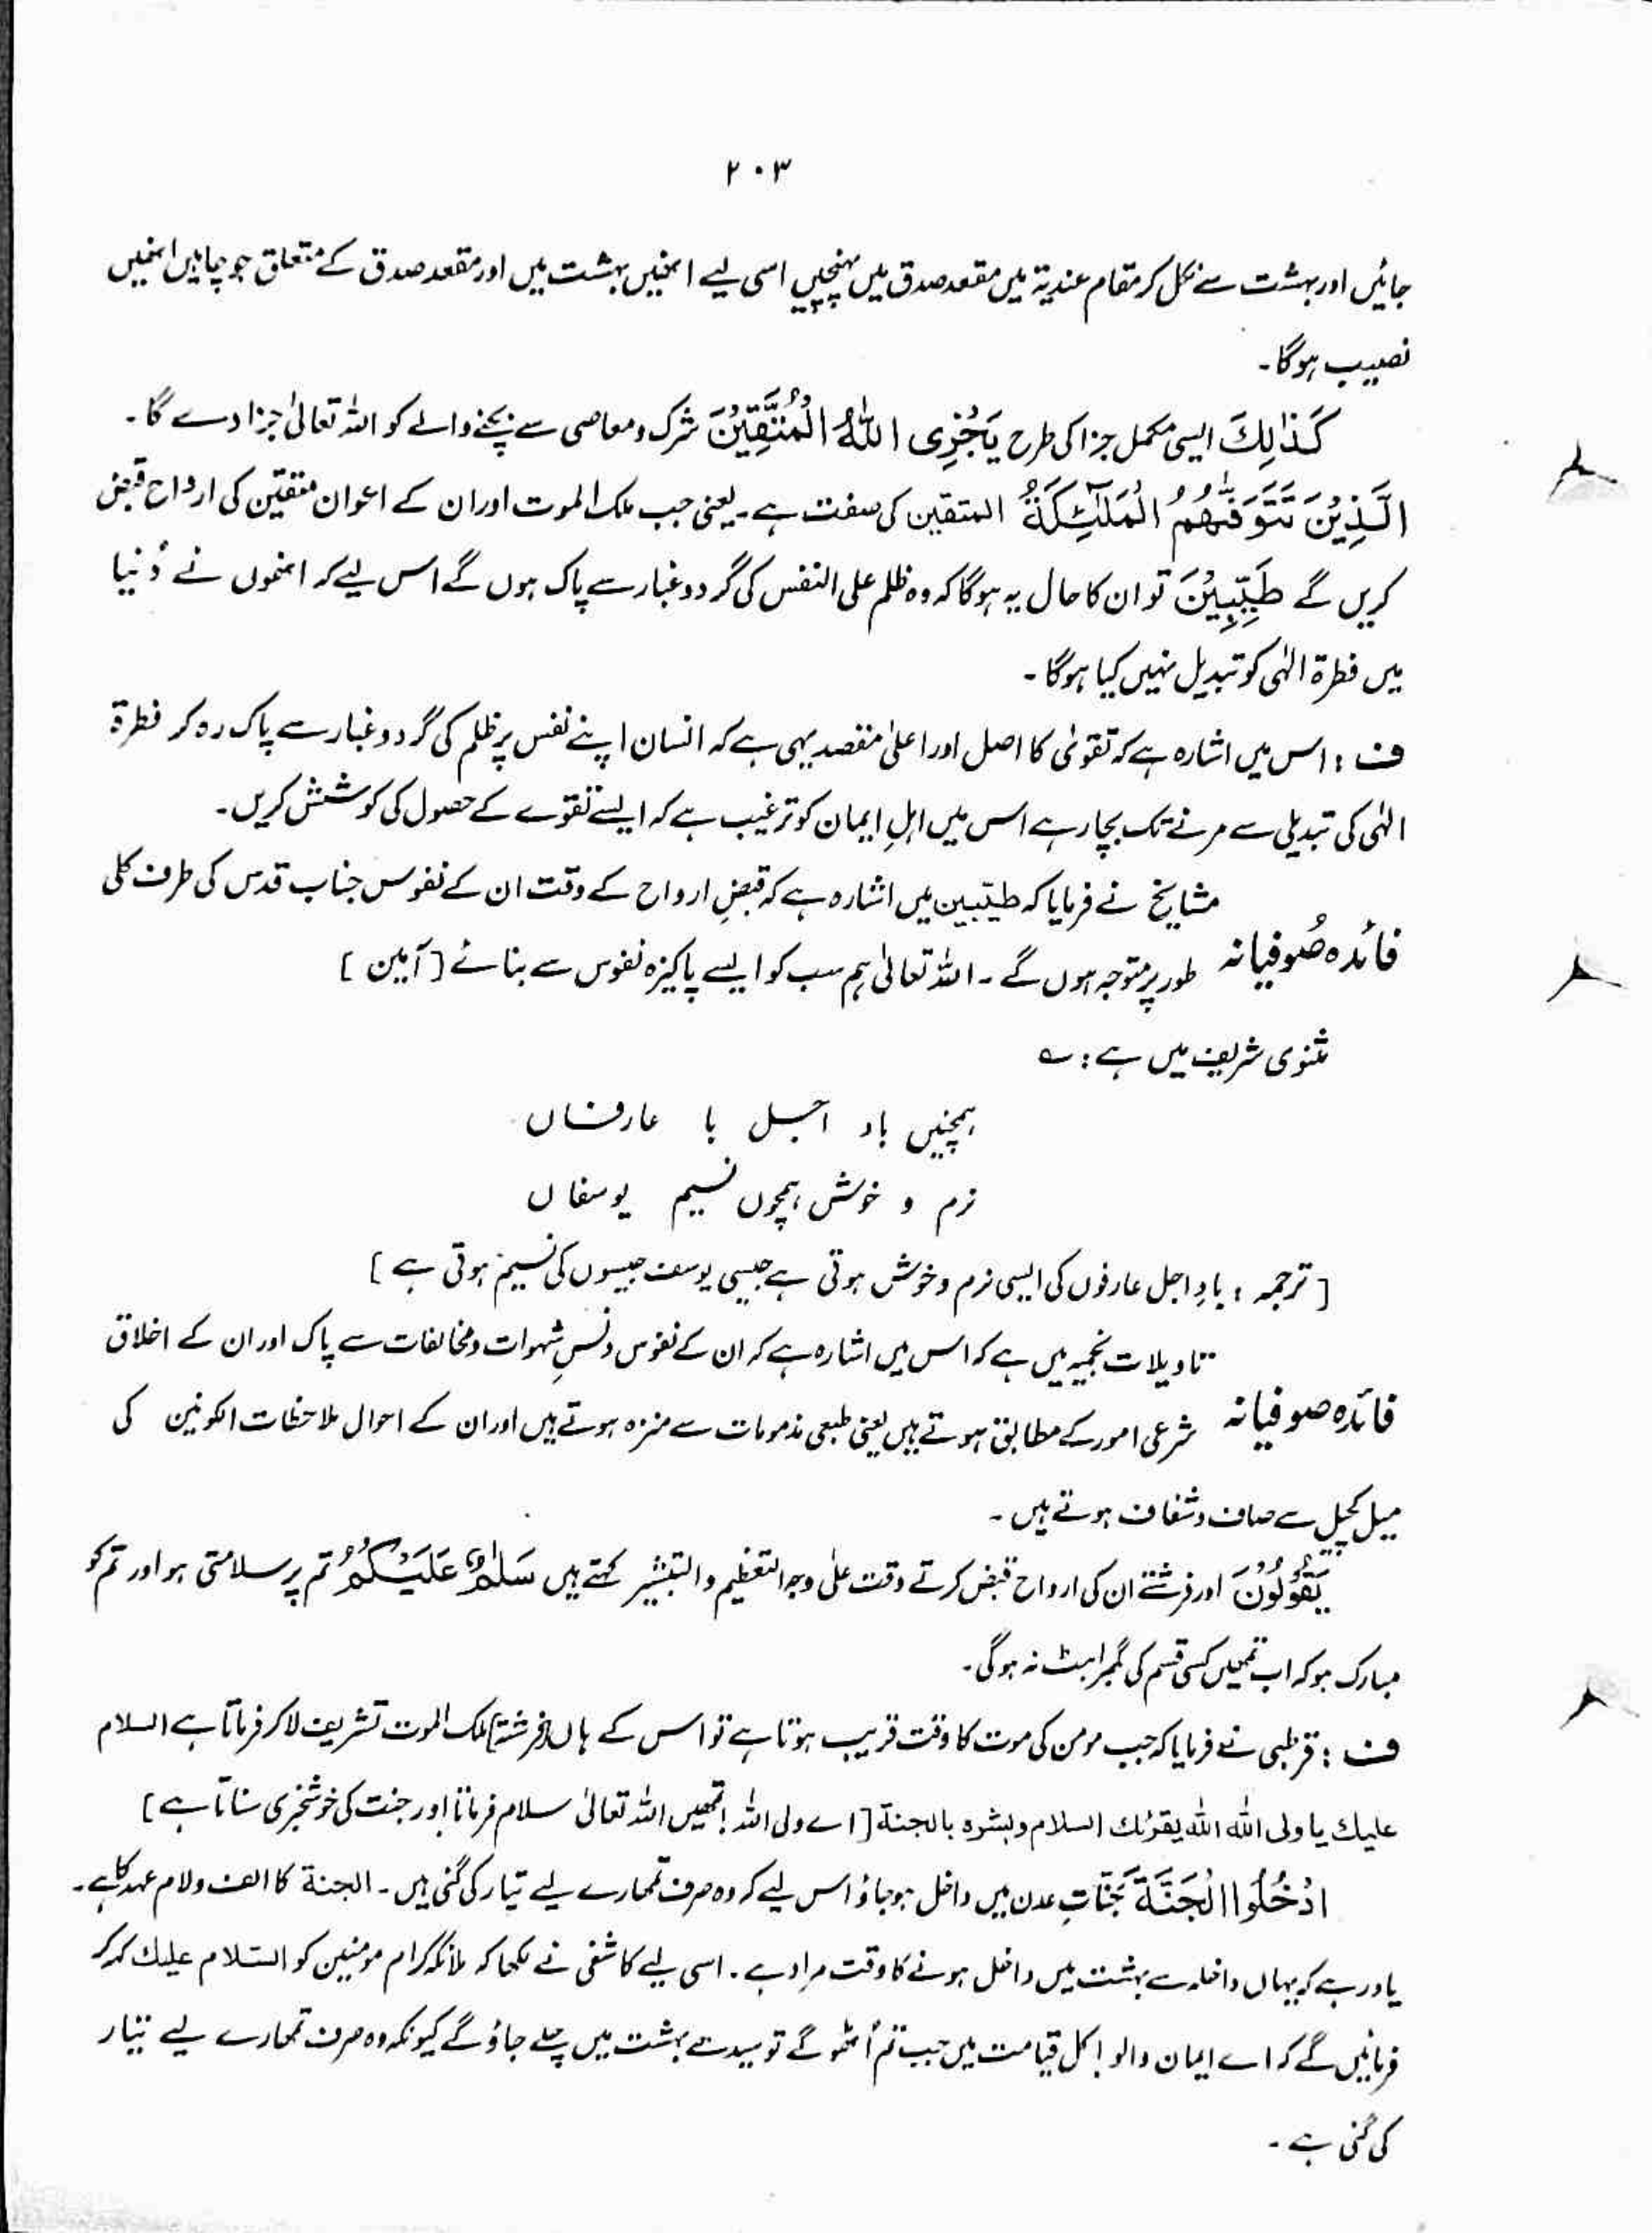 ۲۰۳
جائیں اور بہشت سے نکل کر مقام عندیۃ میں مقعد صدق میں پہنچیں اسی لیے انھیں بہشت میں اور مقعد صدق کے متعلق جو چاہیں انھیں
نصیب ہوگا۔
کَذٰلِکَ ایسی مکمل جزا کی طرح یَجْزِی اللّٰہُ الْمُتَّقِیْنَ شرک و معاصی سے بچنے والے کو اللہ تعالیٰ جزا دے گا۔
الَّذِیْنَ تَتَوَفّٰہُمُ الْمَلٰٓئِکَۃُ المتقین کی صفت ہے۔ یعنی جب ملک الموت اور ان کے اعوان متقین کی ارواح قبض
کریں گے طَیِّبِیْنَ تو ان کا حال یہ ہوگا کہ وہ ظلم علی النفس کی گرد و غبار سے پاک ہوں گے اس لیے کہ انھوں نے دُنیا
میں فطرۃ الٰہی کو تبدیل نہیں کیا ہوگا۔
ف : اس میں اشارہ ہے کہ تقویٰ کا اصل اور اعلیٰ مقصد یہی ہے کہ انسان اپنے نفس پر ظلم کی گرد و غبار سے پاک رہ کر فطرۃ
الٰہی کی تبدیلی سے مرنے تک بچا رہے اس میں اہلِ ایمان کو ترغیب ہے کہ ایسے تقوے کے حصول کی کوشش کریں۔
مشایخ نے فرمایا کہ طیّبین میں اشارہ ہے کہ قبضِ ارواح کے وقت ان کے نفوس جناب قدس کی طرف کلی
فائدہ صُوفیانہ طور پر متوجہ ہوں گے۔ اللہ تعالیٰ ہم سب کو ایسے پاکیزہ نفوس سے بنائے [ آمین ]
مثنوی شریف میں ہے : ؎
ہمچنیں باد اجل با عارفاں
نرم و خوش ہمچوں نسیم یوسفاں
[ ترجمہ : بادِ اجل عارفوں کی ایسی نرم و خوش ہوتی ہے جیسی یوسف جیسوں کی نسیم ہوتی ہے ]
تاویلات نجمیہ میں ہے کہ اس میں اشارہ ہے کہ ان کے نفوس دنسِ شہوات و مخالفات سے پاک اور ان کے اخلاق
فائدہ صوفیانہ شرعی امور کے مطابق ہوتے ہیں یعنی طبعی مذمومات سے منزہ ہوتے ہیں اور ان کے احوال ملاحظات الکونین کی
میل کچیل سے صاف و شفاف ہوتے ہیں۔
یَقُوْلُوْنَ اور فرشتے ان کی ارواح قبض کرتے وقت علیٰ وجہ التعظیم والتبشیر کہتے ہیں سَلٰمٌ عَلَیْکُمُ تم پر سلامتی ہو اور تم کو
مبارک ہو کہ اب تمھیں کسی قسم کی گھبراہٹ نہ ہوگی۔
ف : قرطبی نے فرمایا کہ جب مومن کی موت کا وقت قریب ہوتا ہے تو اس کے ہاں (فرشتہ) ملک الموت تشریف لا کر فرماتا ہے السلام
علیك یا ولی اللہ اللہ یقرئك السلام و بشرہ بالجنة [ اے ولی اللہ ! تمھیں اللہ تعالیٰ سلام فرماتا اور جنت کی خوشخبری سناتا ہے ]
ادْخُلُوا الْجَنَّۃَ جَنّٰتِ عدن میں داخل ہو جاؤ اس لیے کہ وہ صرف تمھارے لیے تیار کی گئی ہیں۔ الجنة کا الف ولام عہد کا ہے۔
یاد رہے کہ یہاں داخلہ سے بہشت میں داخل ہونے کا وقت مراد ہے۔ اسی لیے کاشفی نے لکھا کہ ملائکہ کرام مومنین کو السّلام علیك کہہ کر
فرمائیں گے کہ اے ایمان والو ! کل قیامت میں جب تم اُٹھو گے تو سیدھے بہشت میں چلے جاؤ گے کیونکہ وہ صرف تمھارے لیے تیار
کی گئی ہے۔